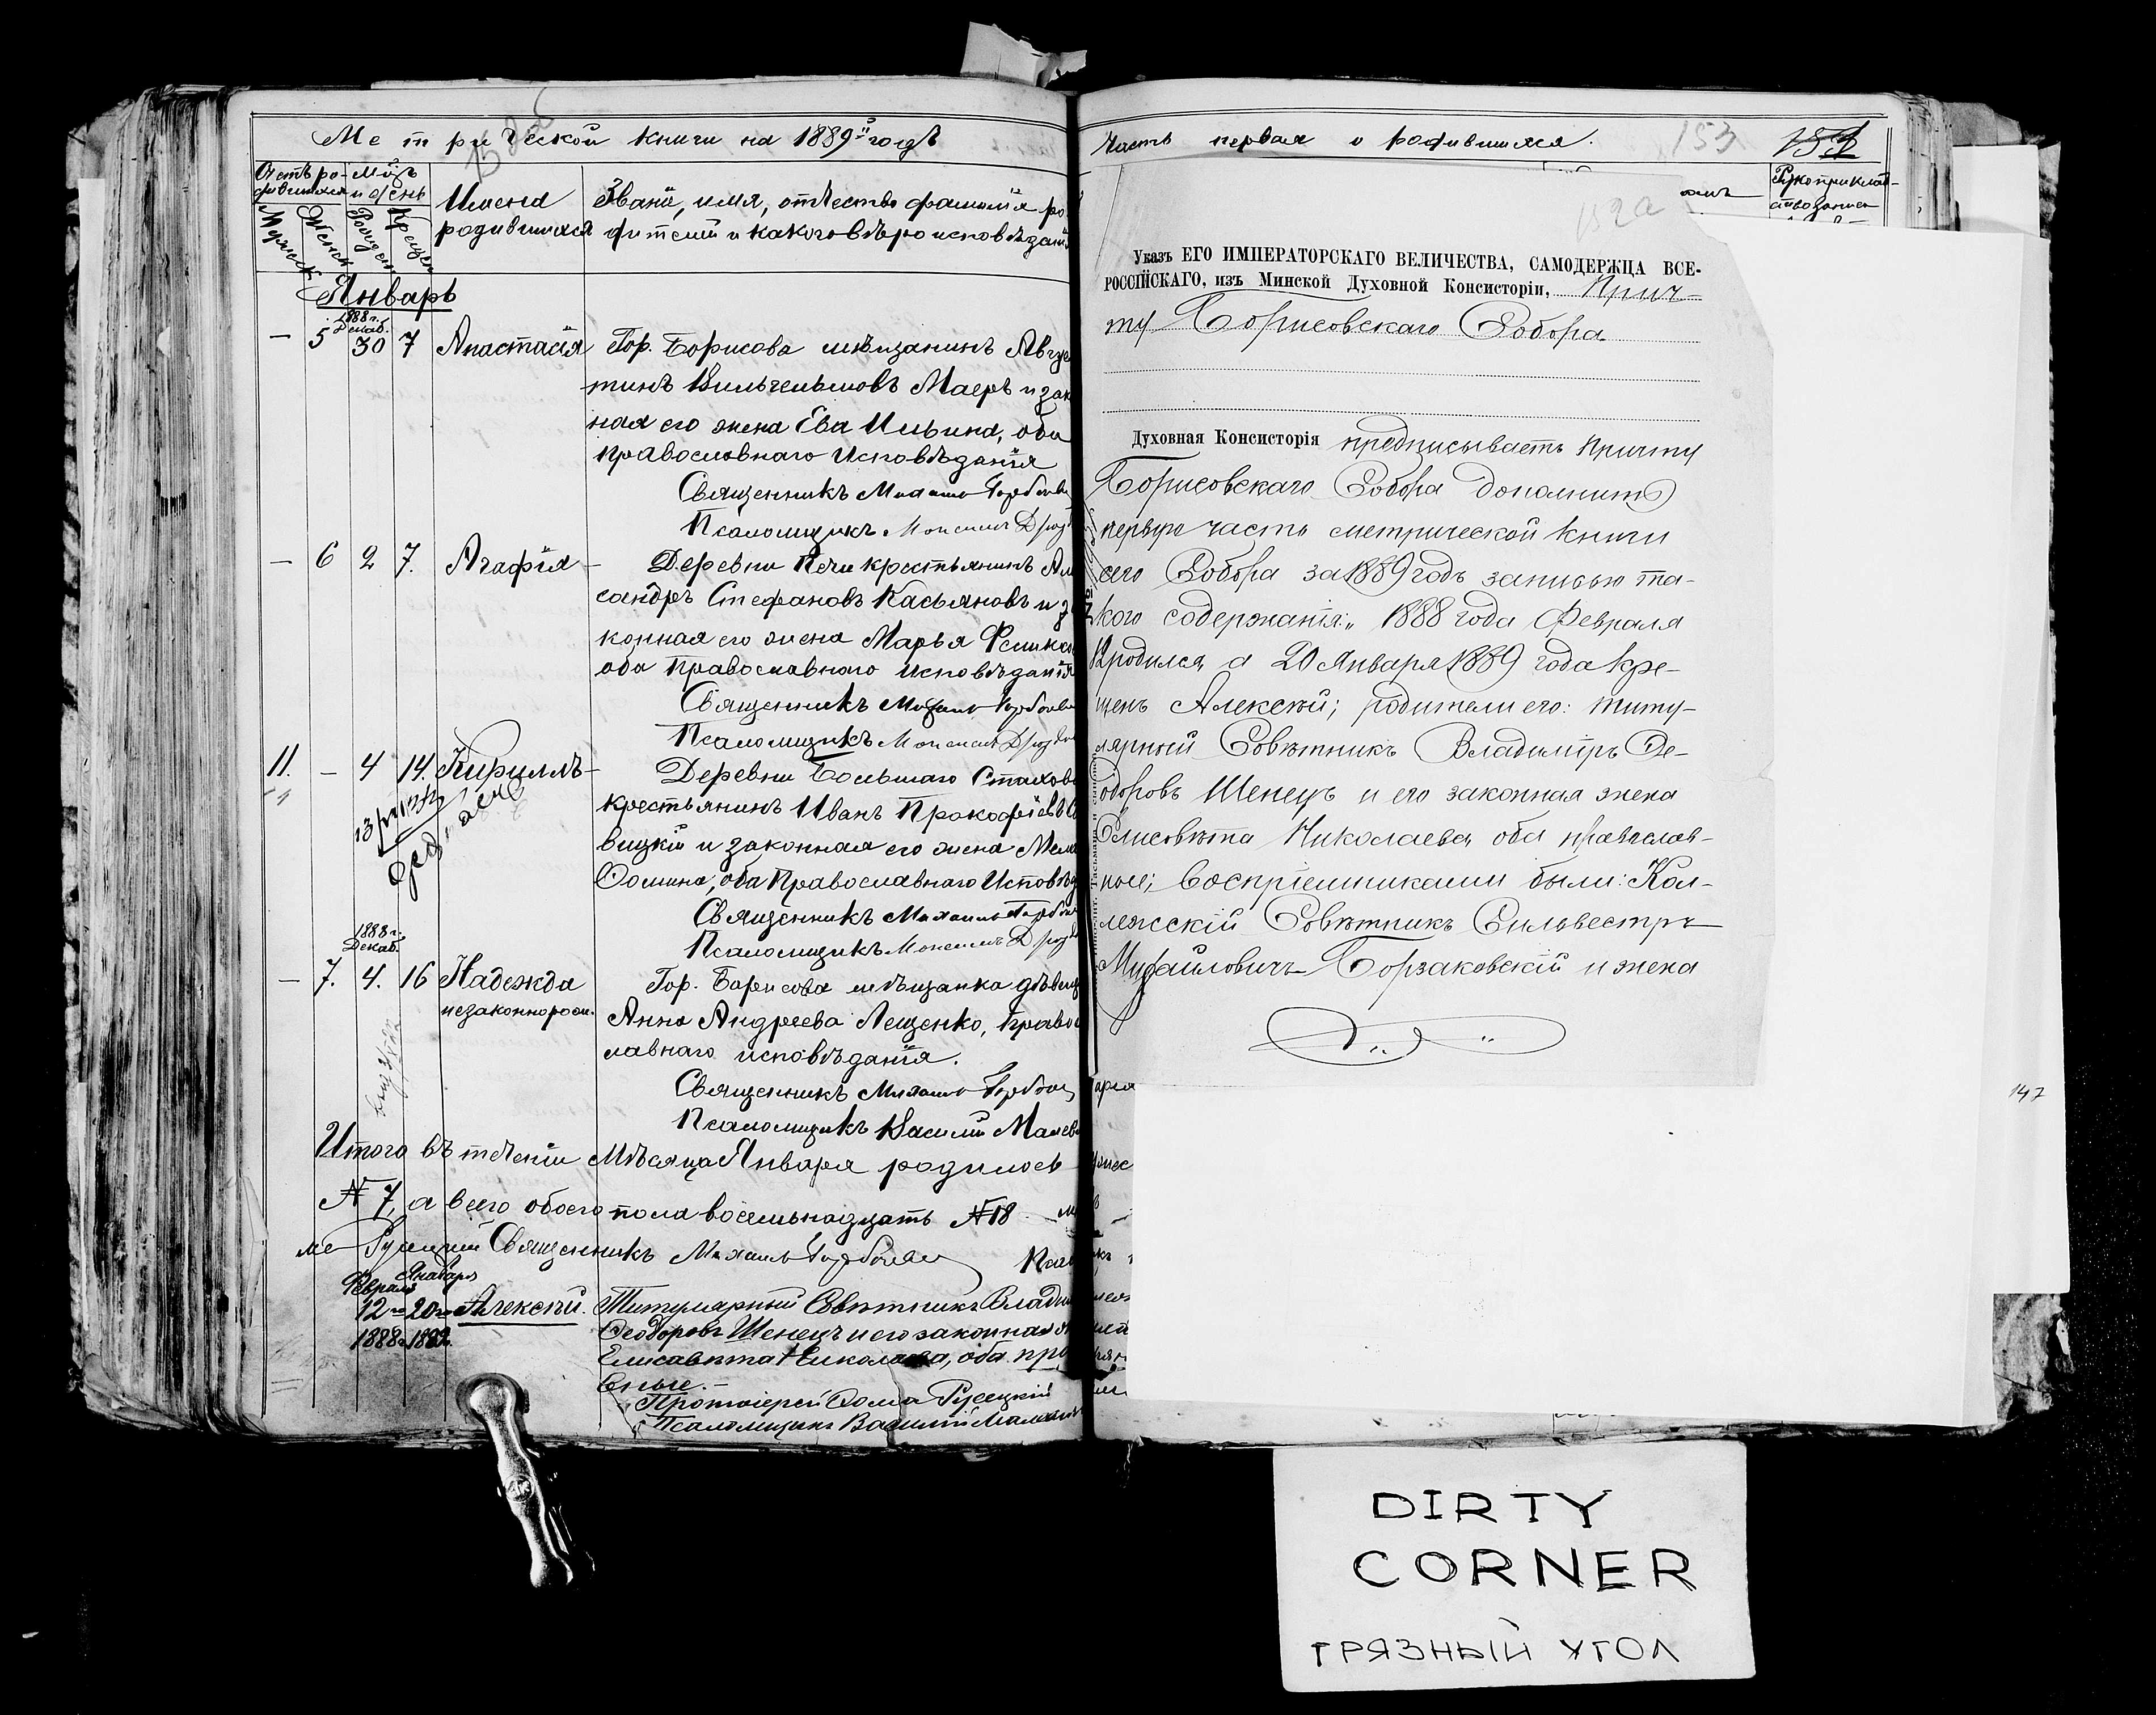 Метрической книги на 1889й годъ
Счетъ ро-
дившихся
Мѣц.
и день
Мужеск
Женск
Рожден
Крещен
Имена
родившихся
Званіе, имя, отчество фамилія ро
дителей и какого вѣроисповѣдані
Январь
1888 г.
Декаб.
— 5 30 7 Анастасія Гор. Борисова мѣщанинъ Авгус
тинъ Вильгельмовъ Маеръ и зак
ная его жена Ева Ильина, оба
Православнаго Исповѣданія
Священникъ Михаилъ
Псаломщикъ
— 6 2 7. Агафія Деревни Печи крестьянинъ Ал
сандръ Стефановъ Касьяновъ и з
конная его жена Марья
оба Православнаго Исповѣданія
Священникъ Михаилъ
Псаломщикъ
11. — 4 14. Кириллъ Деревни Большаго Стахов
крестьянинъ Иванъ Прокофіевъ
вицкій и законная его жена Мела
Ѳомина, оба Православнаго Исповѣд
Священникъ Михаилъ
Псаломщикъ
1888 г.
Декаб.
— 7. 4. 16 Надежда Гор. Борисова мѣщанка дѣвица
незаконнорож. Анна Андреева Лещенко, Право
славнаго исповѣданія.
Священникъ Михаилъ
Псаломщикъ Василій
Итого въ теченіи Мѣсяца Января родилось
№ 7, а всего обоего пола восемьнадцать № 18
Священникъ Михаилъ
Февраля Января
12го 20го Алексѣй. Титулярный Совѣтникъ Влади
1888 1889 Ѳеодоровъ Шенецъ и его законная
Елисавета Николаева, оба пра
вные.
Протоіерей Ѳома Русецкій
Псаломщикъ Василій
Часть первая о родившихся.
153
Рукоприклад-
152а
Указъ ЕГО ИМПЕРАТОРСКАГО ВЕЛИЧЕСТВА, САМОДЕРЖЦА ВСЕ-
РОССІЙСКАГО, изъ Минской Духовной Консисторіи, Прич-
ту Борисовскаго Собора
Духовная Консисторія предписываетъ Причту
Борисовскаго Собора дополнить
первую часть метрической книги
сего Собора за 1889 годъ записью та-
кого содержанія: „1888 года Февраля
12 родился, а 20 Января 1889 года кре-
щенъ Алексѣй; родители его: титу-
лярный Совѣтникъ Владиміръ Ѳе-
одоровъ Шенецъ и его законная жена
Елисавета Николаева, оба православ-
ные; воспріемниками были: Кол-
лежскій Совѣтникъ Сильвестръ
Михайловичъ Борзаковскій и жена
147
DIRTY
CORNER
ГРЯЗНЫЙ УГОЛ